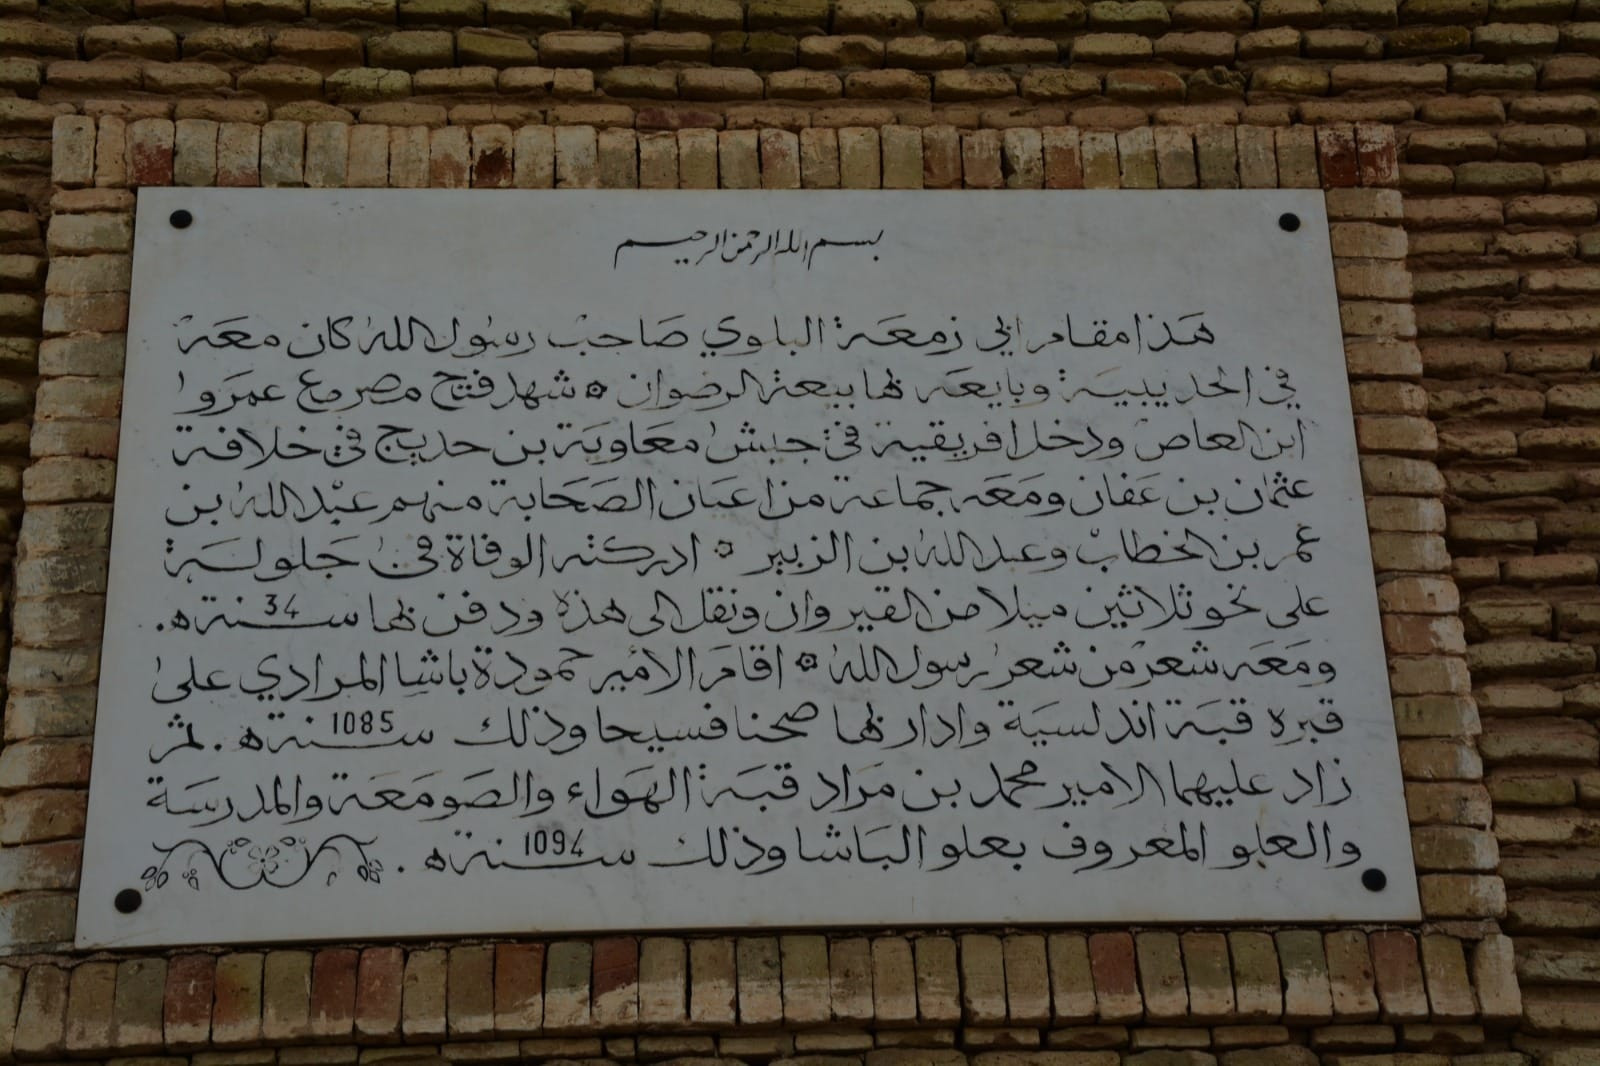 بسم الله الرحمن الرحيم
هَذا مقام ابي زمعَة البلوي صَاحب رسُول الله كان معَه
في الحديبيَة وبايعَه بها بيعة الرضوان ۞ شهد فتح مصر مع عمرَوا
ابن العاص ودخل افريقية في جيش معَاويَة بن حديج في خلافة
عثمان بن عَفان ومَعَه جماعة من اعيَان الصَحَابة منهم عبْد الله بن
عمر بن الخطاب وعبد الله بن الزبير ۞ ادركته الوفاة في جَلولَة
على نحو ثلاثين ميلا من القيروان ونقل الى هذه ودفن بها سنة 34 ه.
ومَعَه شعر من شعر رسول الله ۞ اقامَ الامير حمودة باشا المرادي على
قبره قبَة اندلسيَة وادار بها صحنا فسيحا وذلك سنة 1085 ه. ثم
زاد عليهما الامير محمد بن مَراد قبَة الهَواء والصَومَعَة والمدرسَة
والعلو المعروف بعلو البَاشا وذلك سنة 1094 ه.